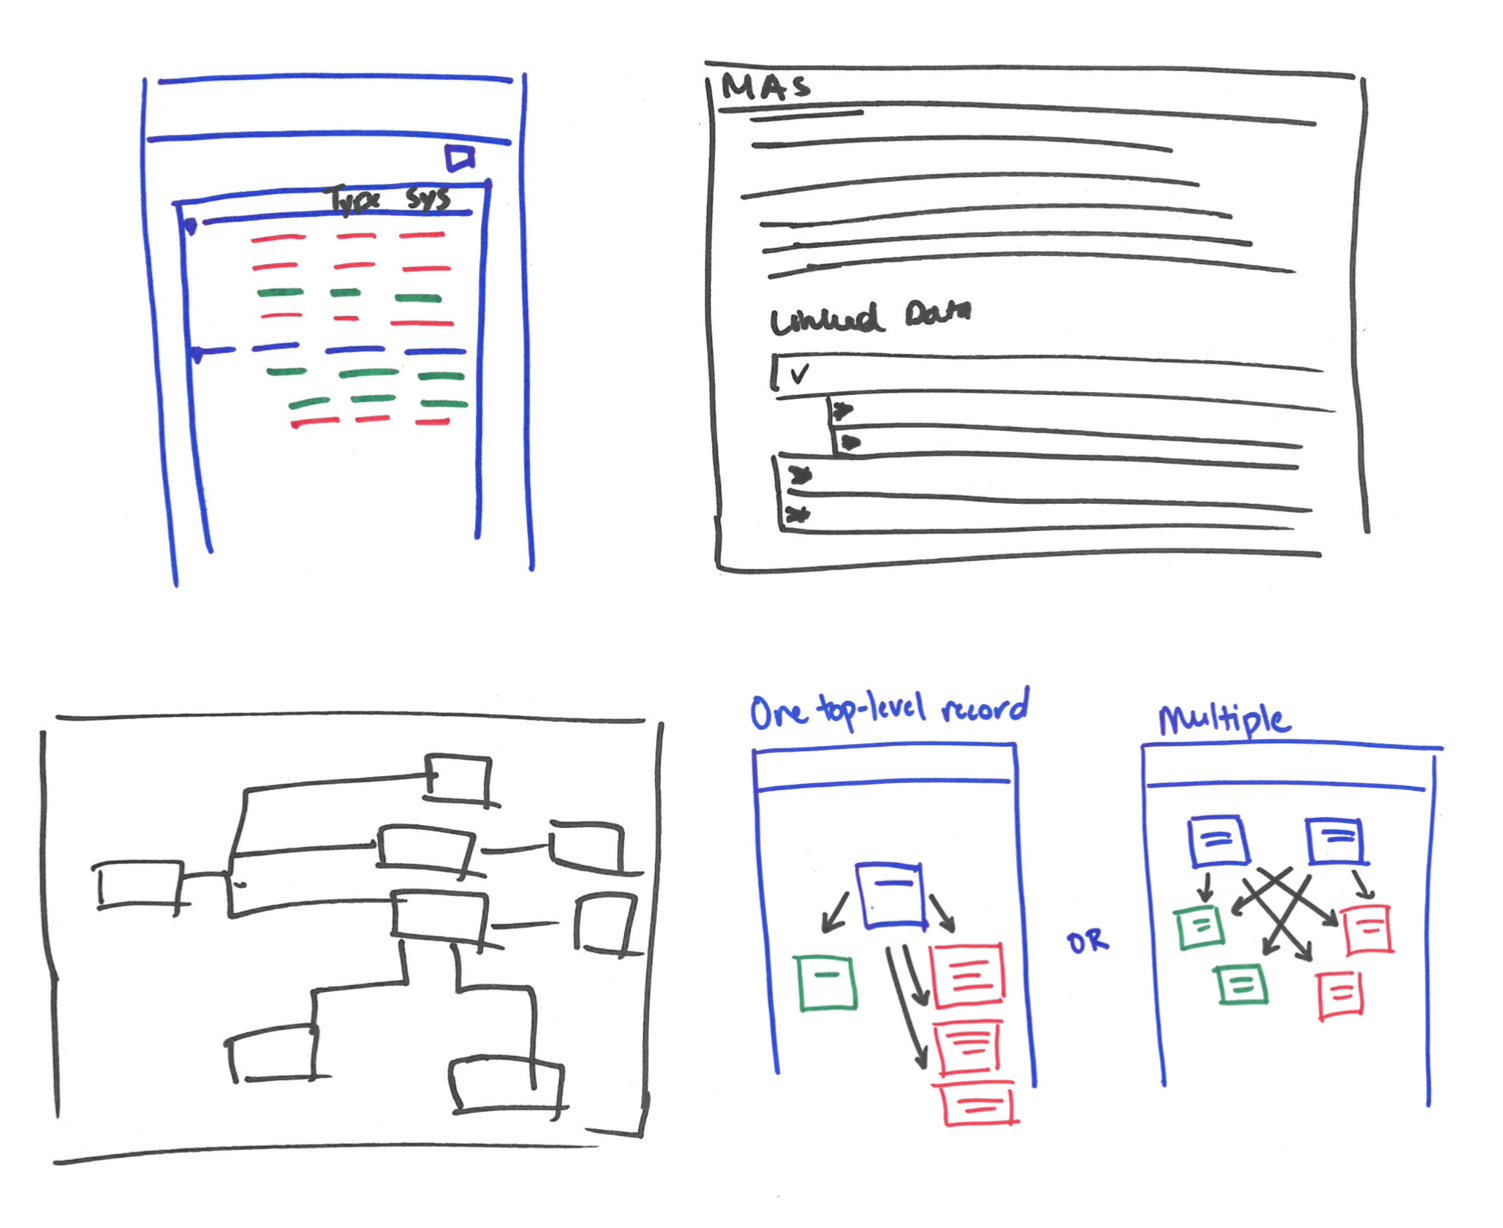 Type Sys
MAs
Linked Data
One top-level record
Multiple
OR